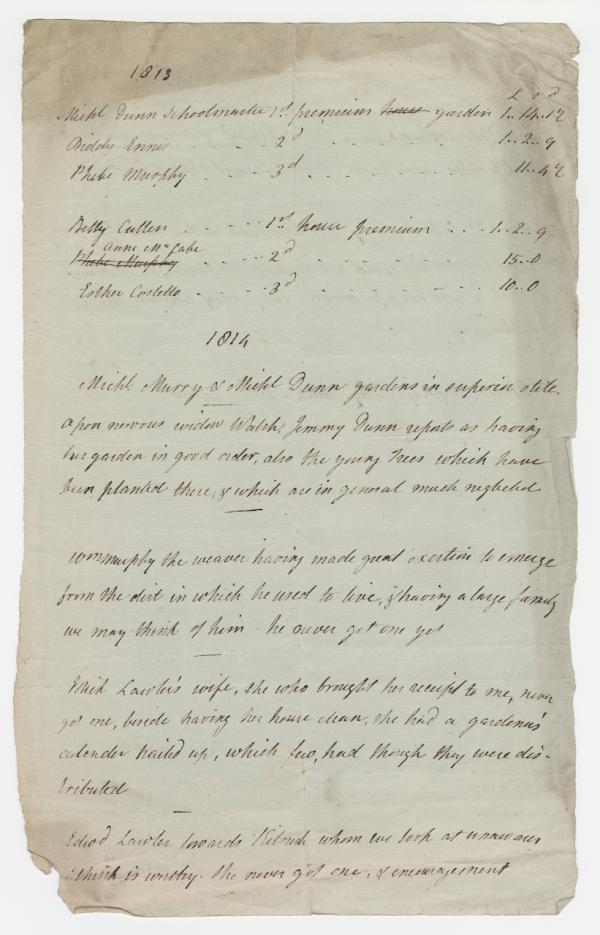 1813
£ s d
Michl Dunn Schoolmaster 1st premium house garden 1..14..1½
Biddy Ennis . . . . 2d . . . . . 1..2..9
Phebe Murphy . . . . 3d . . . . . 11..4½
Betty Cullen . . . . . . 1st house premium . . . 1..2..9
Anne McCabe
Phebe Murphy . . . . 2d . . . . . 15..0
Esther Costello . . . . 3d . . . . . 10..0
1814
Michl. Murry & Michl Dunn gardens in superior state.
widow Walsh, Jimmy Dunn reports as having
her garden in good order, also the young Trees which have
been planted there, & which are in general much neglected
Wm Murphy the weaver having made great exertion to emerge
from the dirt in which he used to live, & having a large family
we may think of him - he never got one yet
Lawler's wife, she who brought her receipt to me, never
got one, beside having her house clean, she had a gardener's
calender nailed up, which few, had though they were dis-
tributed
Edwd Lawler towards whom we took at unawares
I think is worthy. She never got one, & encouragement